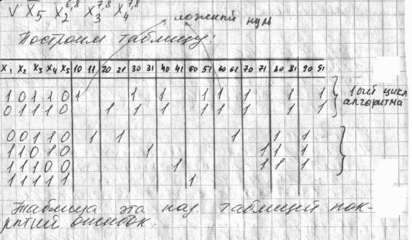 V X̄5 X2^6,8 X3^7,8 X4^7,8
ложный нуль
Построим таблицу:
X1 X2 X3 X4 X5 10 11 20 21 30 31 40 41 50 51 60 61 70 71 80 81 90 91
1 0 1 1 0 1 1 1 1 1 1 1 1
0 1 1 1 0 1 1 1 1 1 1 1 1
1ый цикл
алгоритма
0 0 1 1 0 1 1 1 1 1
1 1 0 1 0 1 1 1 1
1 1 1 0 0 1 1 1 1
1 1 1 1 1 1
Таблица эта наз. таблицей пок-
рытий